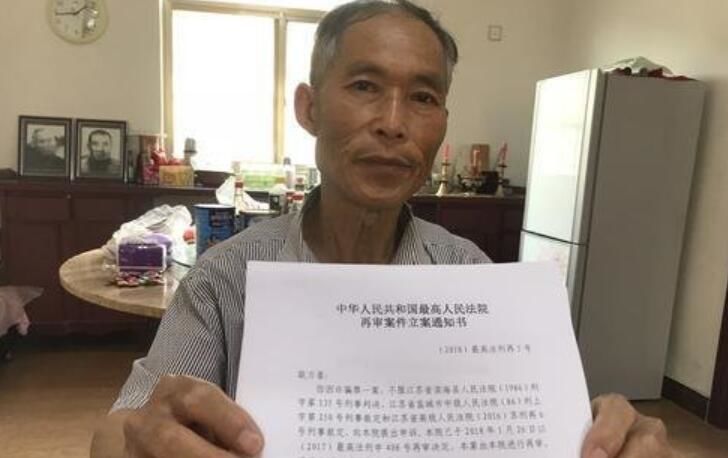 中华人民共和国最高人民法院
再审案件立案通知书
（2018）最高法刑再 号
耿万喜：
你因诈骗罪一案，不服江苏省滨海县人民法院（1986）刑
字第 135 号刑事判决、江苏省盐城市中级人民法院（86）刑上
字第 250 号刑事裁定和江苏省高级人民法院（2016）苏刑再 6
号刑事裁定，向本院提出申诉。本院已于 2018 年 1 月 26 日以
（2017）最高法刑申 406 号再审决定，本案由本院进行再审。